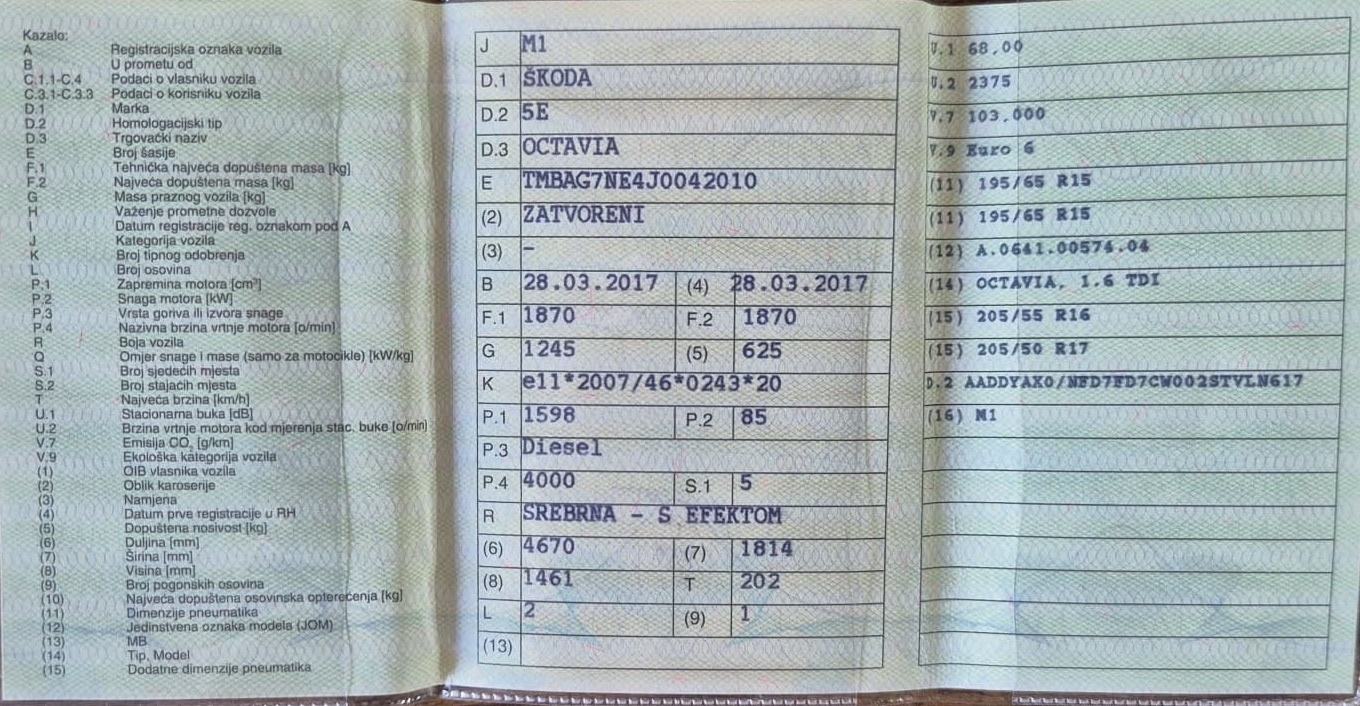 Kazalo:
A Registracijska oznaka vozila
B U prometu od
C.1.1-C.4 Podaci o vlasniku vozila
C.3.1-C.3.3 Podaci o korisniku vozila
D.1 Marka
D.2 Homologacijski tip
D.3 Trgovački naziv
E Broj šasije
F.1 Tehnička najveća dopuštena masa [kg]
F.2 Najveća dopuštena masa [kg]
G Masa praznog vozila [kg]
H Važenje prometne dozvole
I Datum registracije reg. oznakom pod A
J Kategorija vozila
K Broj tipnog odobrenja
L Broj osovina
P.1 Zapremina motora [cm³]
P.2 Snaga motora [kW]
P.3 Vrsta goriva ili izvora snage
P.4 Nazivna brzina vrtnje motora [o/min]
R Boja vozila
Q Omjer snage i mase (samo za motocikle) [kW/kg]
S.1 Broj sjedećih mjesta
S.2 Broj stajaćih mjesta
T Najveća brzina [km/h]
U.1 Stacionarna buka [dB]
U.2 Brzina vrtnje motora kod mjerenja stac. buke [o/min]
V.7 Emisija CO₂ [g/km]
V.9 Ekološka kategorija vozila
(1) OIB vlasnika vozila
(2) Oblik karoserije
(3) Namjena
(4) Datum prve registracije u RH
(5) Dopuštena nosivost [kg]
(6) Duljina [mm]
(7) Širina [mm]
(8) Visina [mm]
(9) Broj pogonskih osovina
(10) Najveća dopuštena osovinska opterećenja [kg]
(11) Dimenzije pneumatika
(12) Jedinstvena oznaka modela (JOM)
(13) MB
(14) Tip, Model
(15) Dodatne dimenzije pneumatika
J M1
D.1 ŠKODA
D.2 5E
D.3 OCTAVIA
E TMBAG7NE4J0042010
(2) ZATVORENI
(3) –
B 28.03.2017 (4) 28.03.2017
F.1 1870 F.2 1870
G 1245 (5) 625
K e11*2007/46*0243*20
P.1 1598 P.2 85
P.3 Diesel
P.4 4000 S.1 5
R SREBRNA - S EFEKTOM
(6) 4670 (7) 1814
(8) 1461 T 202
L 2 (9) 1
(13)
U.1 68,00
U.2 2375
V.7 103,000
V.9 Euro 6
(11) 195/65 R15
(11) 195/65 R15
(12) A.0641.00574.04
(14) OCTAVIA, 1.6 TDI
(15) 205/55 R16
(15) 205/50 R17
D.2 AADDYAX0/NFD7FD7CW002STVLN617
(16) M1